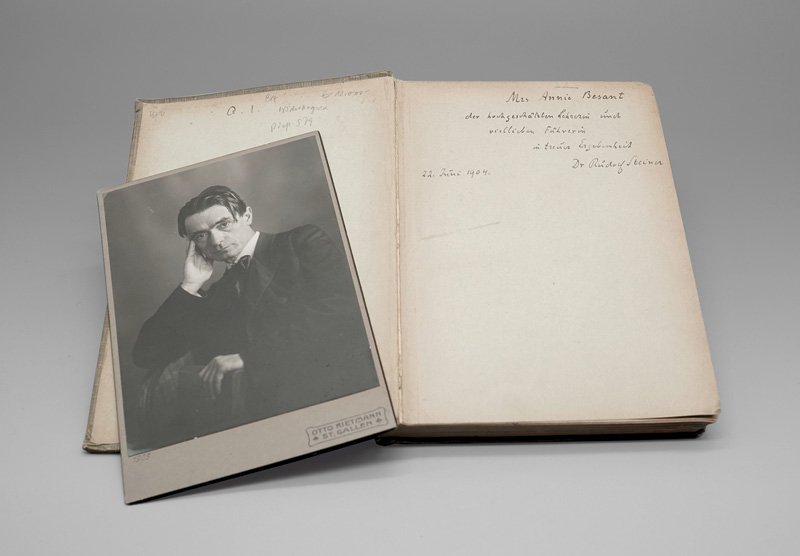 a. l.
Mrs Annie Besant
der hochgeschätzten Lehrerin und
Führerin
in treuer Ergebenheit
Dr Rudolf Steiner
22. Juni 1904.
OTTO RIETMANN
ST. GALLEN